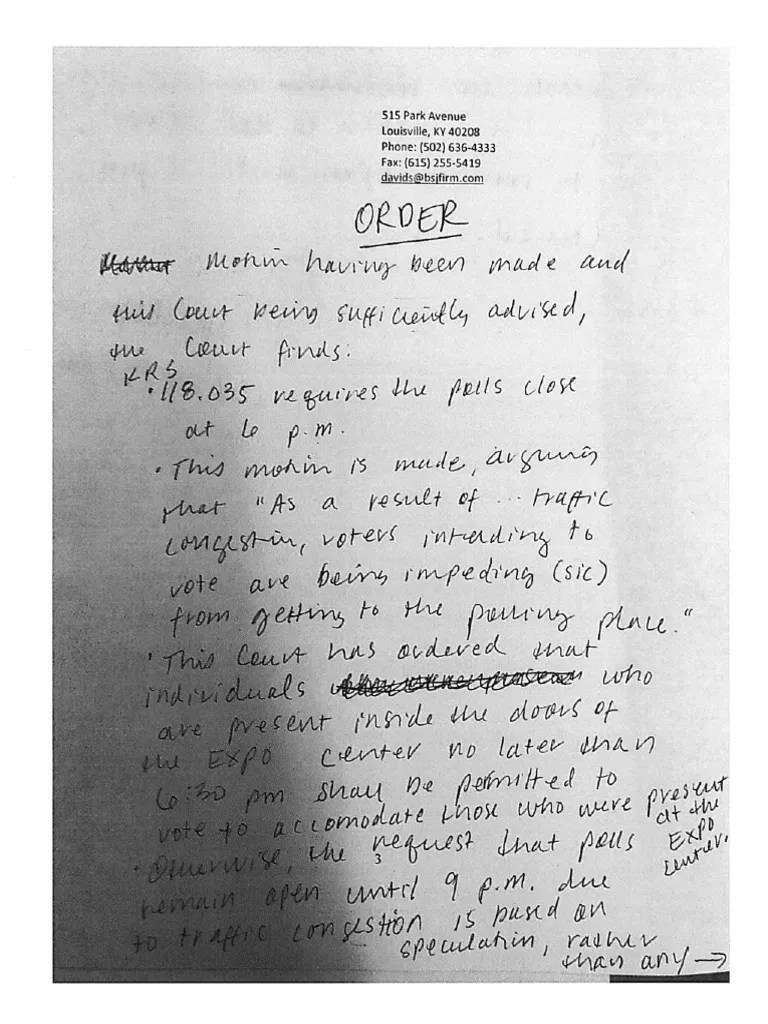 515 Park Avenue
Louisville, KY 40208
Phone: (502) 636-4333
Fax: (615) 255-5419
davids@bsjfirm.com
ORDER
Motion having been made and
this Court being sufficiently advised,
the Court finds:
KRS
· 118.035 requires the polls close
at 6 p.m.
· This motion is made, arguing
that "As a result of ... traffic
congestion, voters intending to
vote are being impeding (sic)
from getting to the polling place."
· This Court has ordered that
individuals who
are present inside the doors of
the EXPO Center no later than
6:30 pm shall be permitted to
vote to accomodate those who were present
at the
EXPO
center.
· Otherwise, the request that polls
remain open until 9 p.m. due
to traffic congestion is based on
speculation, rather
than any →